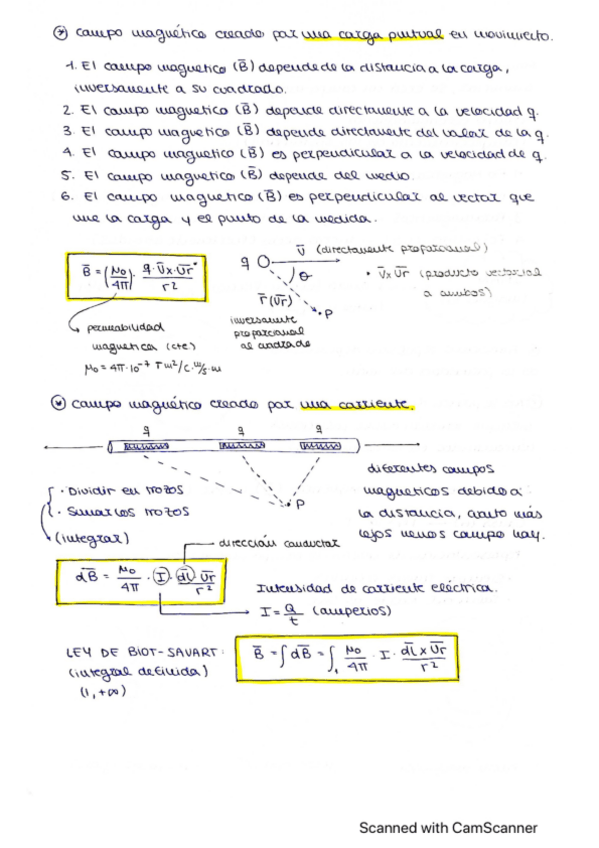 * Campo magnético creado por una carga puntual en movimiento.
1. El campo magnetico (B̄) depende de la distancia a la carga,
inversamente a su cuadrado.
2. El campo magnetico (B̄) depende directamente a la velocidad q.
3. El campo magnetico (B̄) depende directamente del valor de la q.
4. El campo magnetico (B̄) es perpendicular a la velocidad de q.
5. El campo magnetico (B̄) depende del medio.
6. El campo magnetico (B̄) es perpendicular al vector que
une la carga y el punto de la medida.
B̄ = (μ₀/4π) · q · v̄ x · ūr / r²
q
v̄ (directamente proporcional)
θ
r̄ (ūr)
• P
inversamente
proporcional
al cuadrado
• v̄ x ūr (producto vectorial
a ambos)
permeabilidad
magnetica (cte)
μ₀ = 4π · 10⁻⁷ T m²/C · m/s · m
* Campo magnético creado por una corriente.
q q q
• P
• Dividir en trozos
• Sumar los trozos
(integrar)
diferentes campos
magneticos debido a
la distancia, cuanto más
lejos menos campo hay.
dirección conductor
dB̄ = μ₀/4π · I · dl̄ ūr / r²
Intensidad de corriente eléctrica.
I = Q/t (amperios)
LEY DE BIOT-SAVART:
(integral definida)
(1, +∞)
B̄ = ∫ dB̄ = ∫₁ μ₀/4π · I · dl̄ x ūr / r²
Scanned with CamScanner